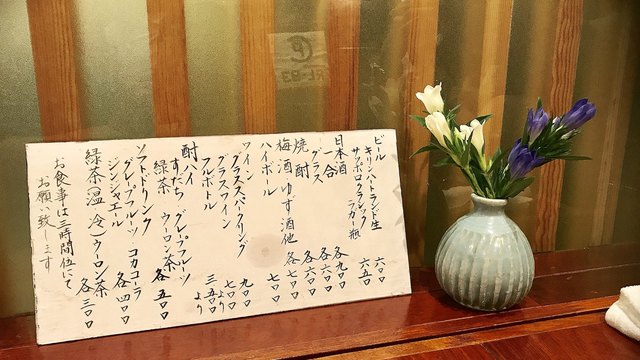 ビール
キリンハートランド生 六〇〇
サッポロクラシックラガー瓶 六五〇
日本酒
一合 各九〇〇
グラス 各六〇〇
焼酎 各六〇〇
梅酒ゆず酒他 各五〇〇
ハイボール 七〇〇
ワイン
グラススパークリング 九〇〇
グラスワイン 七〇〇より
フルボトル 三、五〇〇より
酎ハイ
すだち グレープフルーツ
緑茶 ウーロン茶 各五〇〇
ソフトドリンク
グレープフルーツ コカコーラ
ジンジャエール 各四〇〇
緑茶 温 冷 ウーロン茶 各三〇〇
お食事は二時間位にて
お願い致します